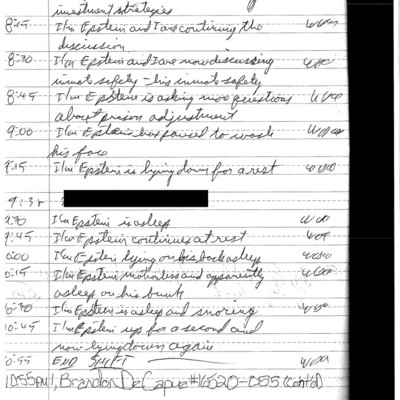 investment strategies
8:15 I/m Epstein and I are continuing the
discussion
8:30 I/m Epstein and I are now discussing
inmate safety - his inmate safety
8:45 I/m Epstein is asking more questions
about prison adjustment
9:00 I/m Epstein has paused to wash
his face
9:15 I/m Epstein is lying down for a rest
9:3
9:30 I/m Epstein is asleep
9:45 I/m Epstein continues at rest
0:00 I/m Epstein lying on his back asleep
0:15 I/m Epstein motionless and apparently
asleep on his bunk
0:30 I/m Epstein is asleep and snoring
10:45 I/m Epstein up for a second and
now lying down again
0:55 END SHIFT
10:55pm, Brandon DeCapua #16520-055 (contd)